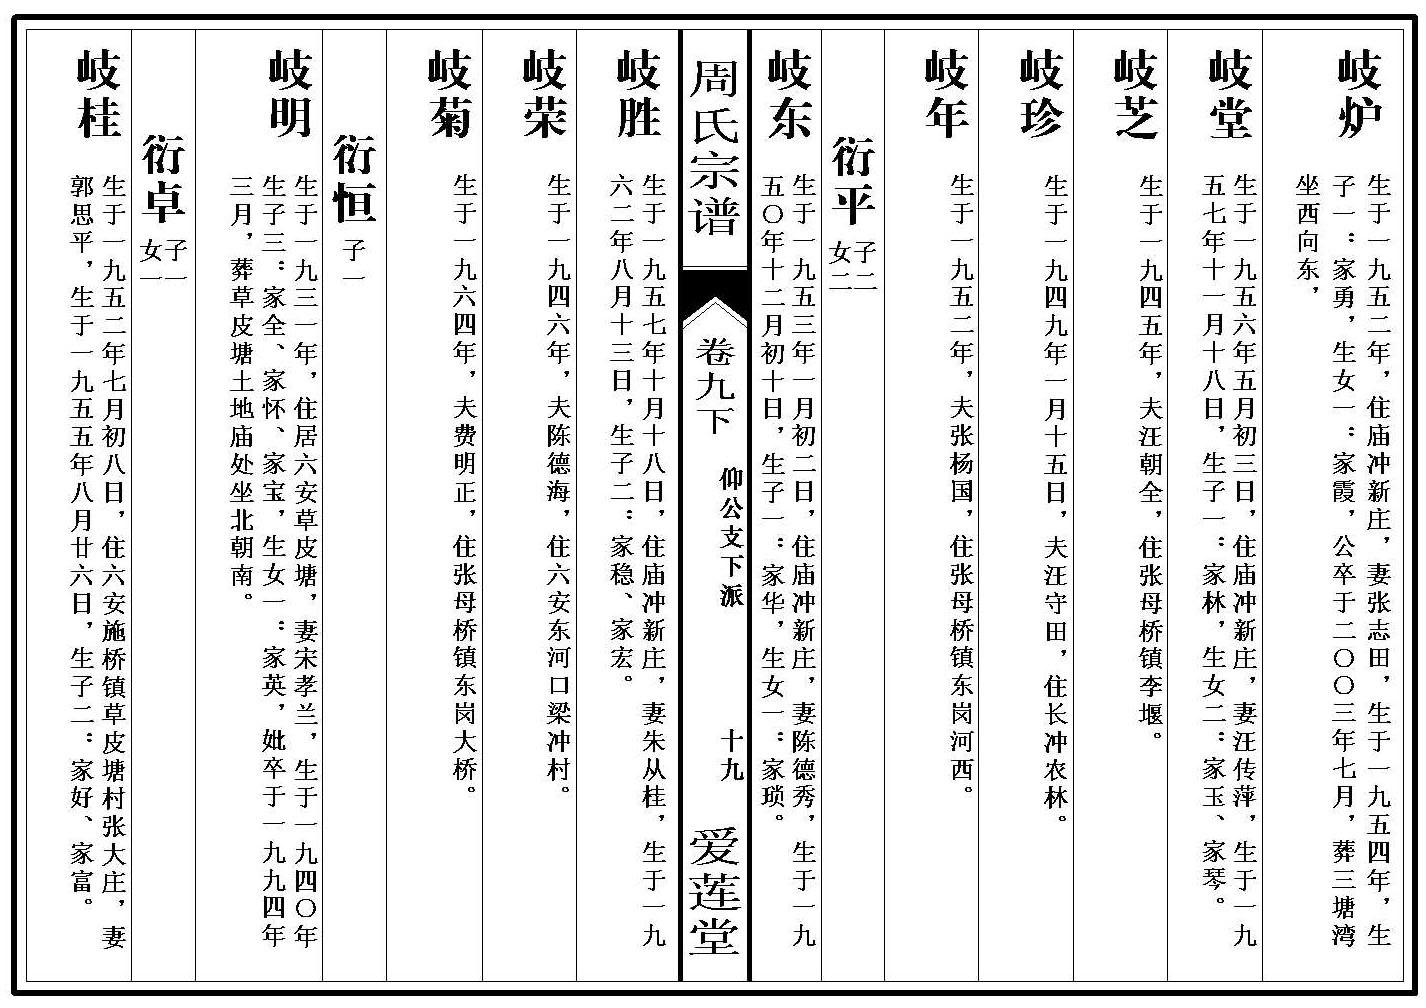 岐炉
生于一九五二年，住庙冲新庄，妻张志田，生于一九五四年，生
子一：家勇，生女一：家霞，公卒于二〇〇三年七月，葬三塘湾
坐西向东，
岐堂
生于一九五六年五月初三日，住庙冲新庄，妻汪传萍，生于一九
五七年十一月十八日，生子一：家林，生女二：家玉、家琴。
岐芝
生于一九四五年，夫汪朝全，住张母桥镇李堰。
岐珍
生于一九四九年一月十五日，夫汪守田，住长冲农林。
岐年
生于一九五二年，夫张杨国，住张母桥镇东岗河西。
衍平
子二
女二
岐东
生于一九五三年一月初二日，住庙冲新庄，妻陈德秀，生于一九
五〇年十二月初十日，生子一：家华，生女一：家琐。
周氏宗谱
卷九下
仰公支下派
十九
爱莲堂
岐胜
生于一九五七年十月十八日，住庙冲新庄，妻朱从桂，生于一九
六二年八月十三日，生子二：家稳、家宏。
岐荣
生于一九四六年，夫陈德海，住六安东河口梁冲村。
岐菊
生于一九六四年，夫费明正，住张母桥镇东岗大桥。
衍恒
子一
岐明
生于一九三一年，住居六安草皮塘，妻宋孝兰，生于一九四〇年
生子三：家全、家怀、家宝，生女一：家英，妣卒于一九九四年
三月，葬草皮塘土地庙处坐北朝南。
衍卓
子一
女一
岐桂
生于一九五二年七月初八日，住六安施桥镇草皮塘村张大庄，妻
郭思平，生于一九五五年八月廿六日，生子二：家好、家富。